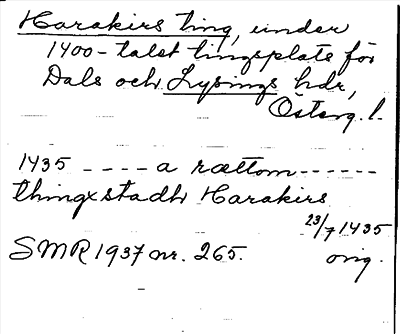 Harakirs ting, under
1400-talet tingsplats för
Dals och Lysings hdr,
Österg. l.
1435 ---- a rættom ------
thingxstadh Harakirs
23/7 1435
SMR 1937 nr. 265. orig.